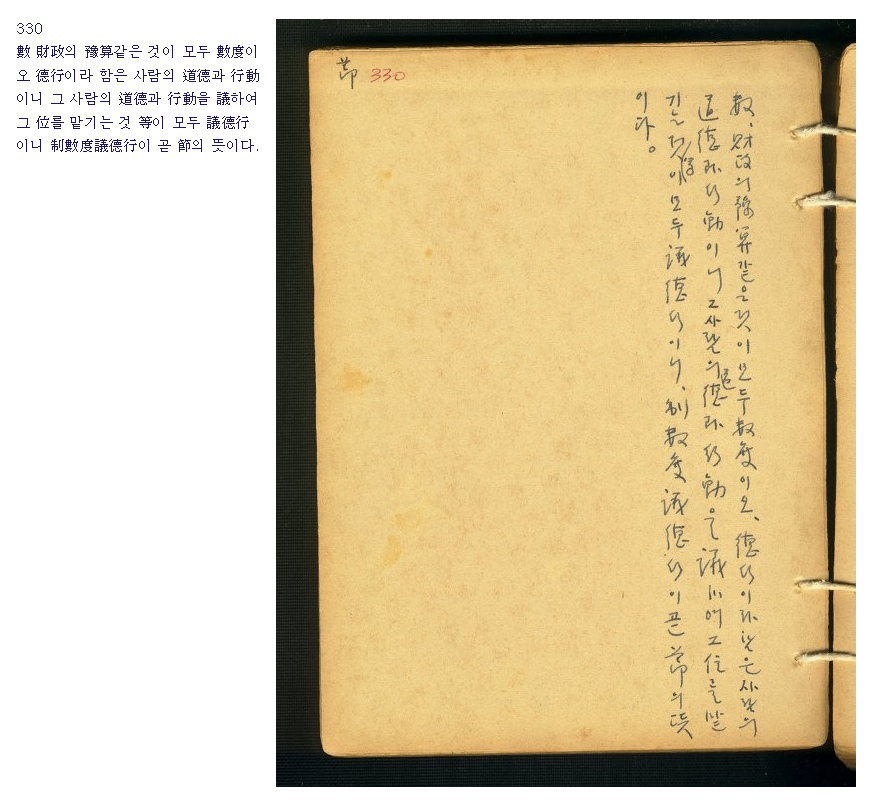 330
數 財政의 豫算같은 것이 모두 數度이
오 德行이라 함은 사람의 道德과 行動
이니 그 사람의 道德과 行動을 議하여
그 位를 맡기는 것 等이 모두 議德行
이니 制數度議德行이 곧 節의 뜻이다.
節 330
數、財政의豫算같은것이모두數度이오、德行이라함은사람의
道德과行動이니그사람의道德과行動을議하여그位를맡
기는것等이모두議德行이니、制數度議德行이곧節의뜻
이다。